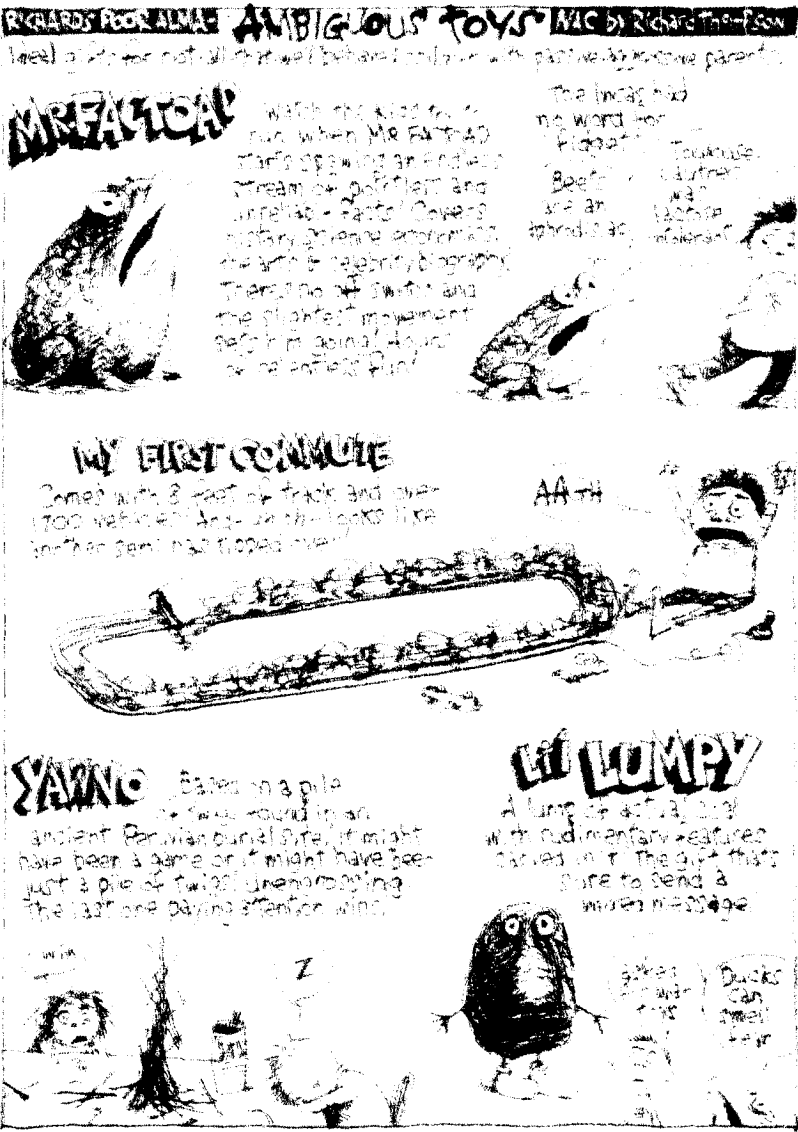 RICHARD'S POOR ALMA-
AMBIGUOUS TOYS
NAC by Richard Thompson
Ideal gifts for not-all-that-well behaved children with passive-aggressive parents
MR FACTOAD
Watch the kids try to
run when MR FACTOAD
starts spewing an endless
stream of pointless and
unreliable facts! Covers
history, science, economics,
the arts & celebrity biography.
There's no off switch and
the slightest movement
sets him going! Hours
of relentless fun!
The Incas had
no word for
"Fidget"
Beets
are an
aphrodisiac
Toulouse
Lautrec
was
lactose
intolerant
MY FIRST COMMUTE
Comes with 8 feet of track and over
1700 vehicles! And- uh oh- looks like
another semi has tipped over
YAWNO
Based on a pile
of twigs found in an
ancient Peruvian burial site, it might
have been a game or it might have been
just a pile of twigs! Unengrossing!
The last one paying attention wins.
I win
Z
Li'l LUMPY
A lump of actual coal
with rudimentary features
carved in it. The gift that's
sure to send a
mixed message
Ducks
can
smell
their